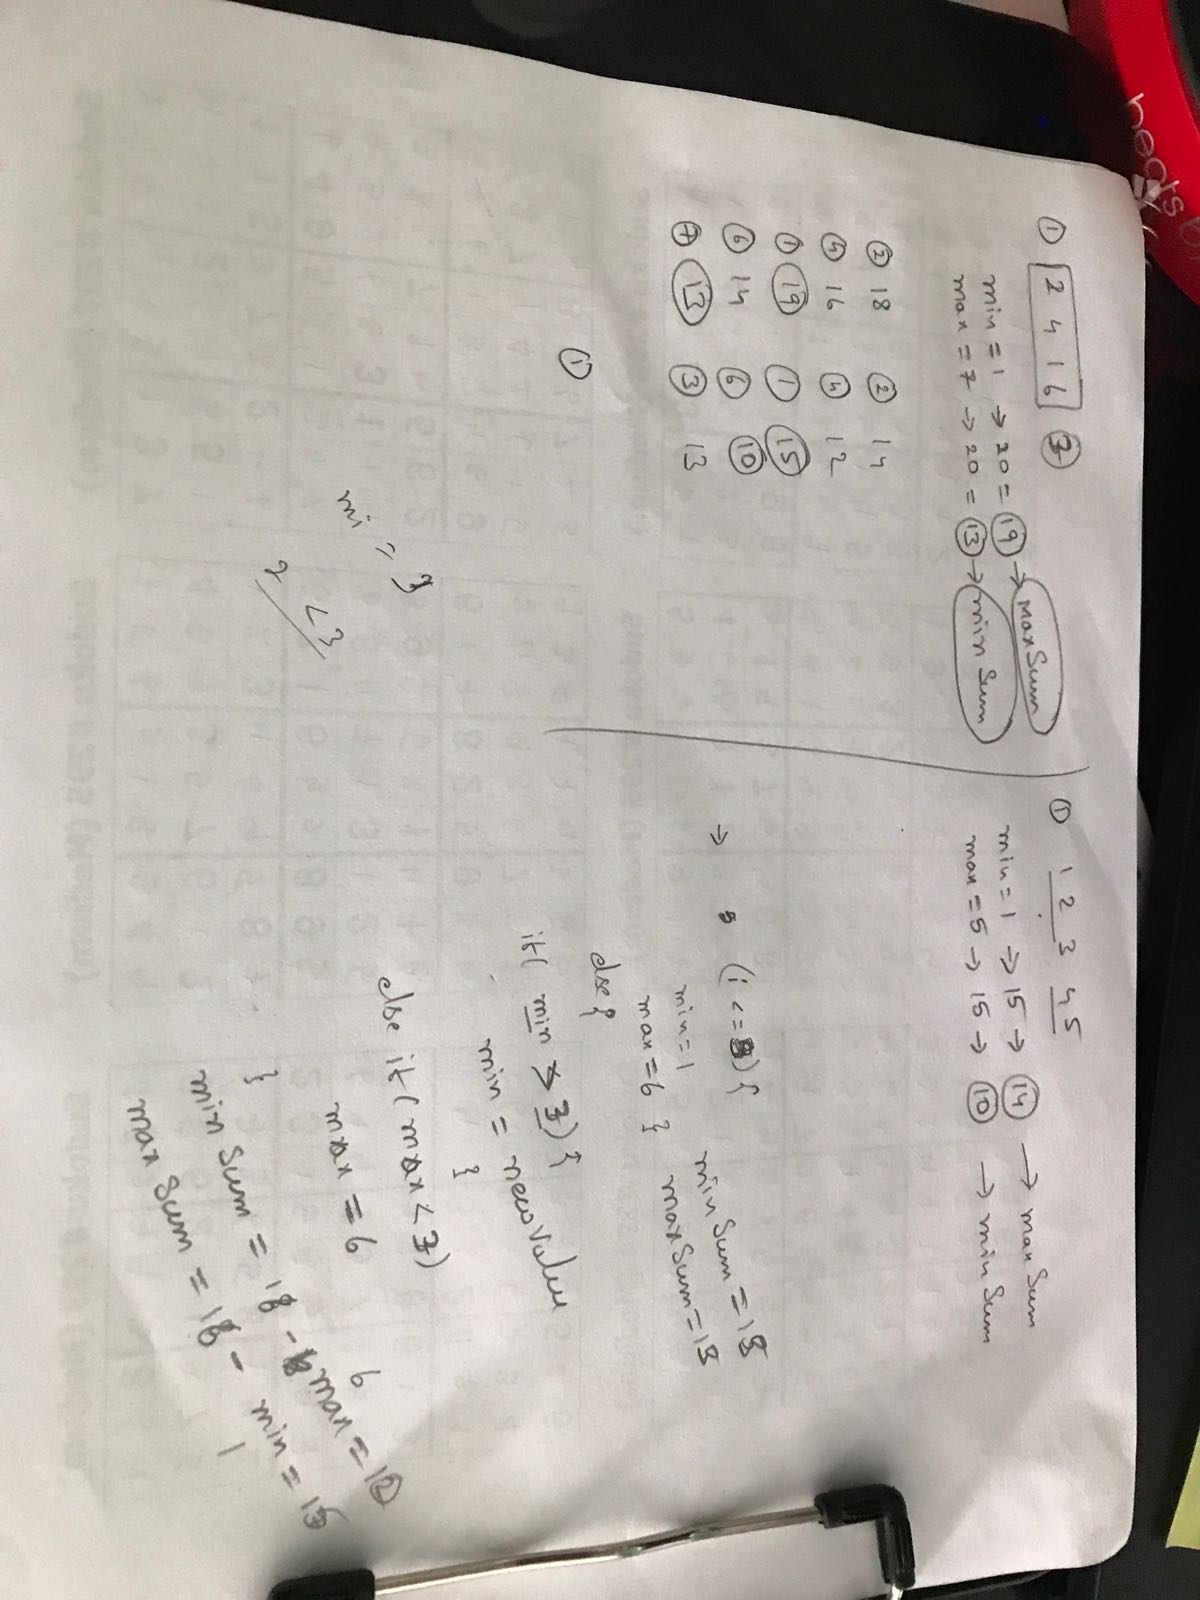 ① 2 4 1 6 ⑦
min = 1 → 20 = ⑲ → maxSum
max = 7 → 20 = ⑬ → min Sum
② 18 ② 14
④ 16 ④ 12
① ⑲ ① ⑮
⑥ 14 ⑥ ⑩
⑦ ⑬ ③ 13
①
mi = 3
2 < 3
① 1 2 3 4 5
min = 1 → 15 → ⑭ → max Sum
max = 5 → 15 → ⑩ → min Sum
→ (i <= ) {
min = 1
max = 6 }
min Sum = 18
max Sum = 18
else {
if( min > 3) {
min = newValue
}
else if( max < 3)
max = 6
}
min Sum = 18 - max = 12
6
max Sum = 18 - min = 15
1
beats